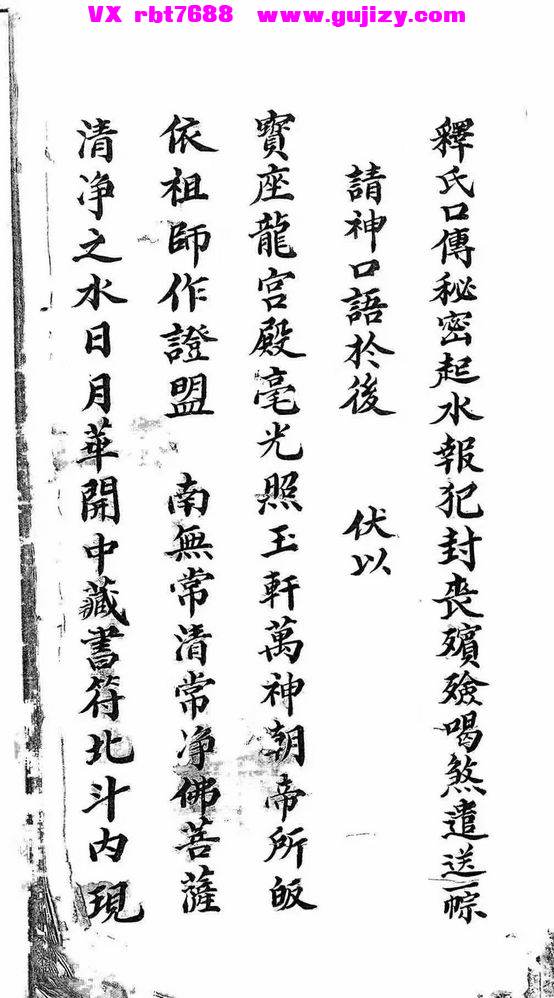 VX rbt7688 www.gujizy.com
釋氏口傳秘密起水報犯封喪殯殮喝煞遣送一宗
請神口語於後 伏以
寳座龍宮殿毫光照玉軒萬神朝帝所皈
依祖師作證盟 南無常清常净佛菩薩
清净之水日月華開中藏書符北斗内現